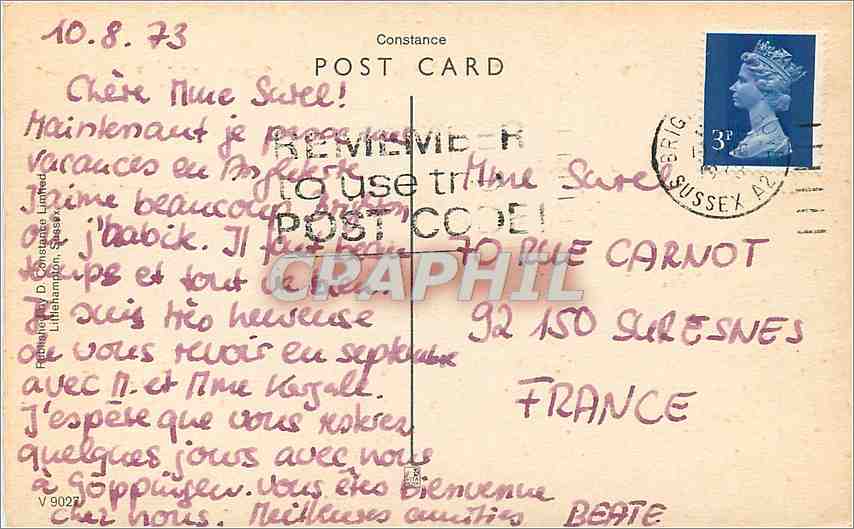 10.8.73
Constance
POST CARD
Chère Mme Surel!
Maintenant je passe mes
vacances en Angleterre.
J'aime beaucoup Brighton
où j'habite. Il fait beau
temps et tout va bien.
Je suis très heureuse
de vous revoir en septembre
avec M. et Mme
J'espère que vous resterez
quelques jours avec nous
à Göppingen. Vous êtes bienvenue
chez nous. Meilleures amitiés BEATE
REMEMBER
to use the
POST CODE!
3P
BRIG
SUSSEX A2
Mme Surel
70 RUE CARNOT
92 150 SURESNES
FRANCE
CPAPHIL
Published by D. Constance Limited,
Littlehampton, Sussex
V 9027